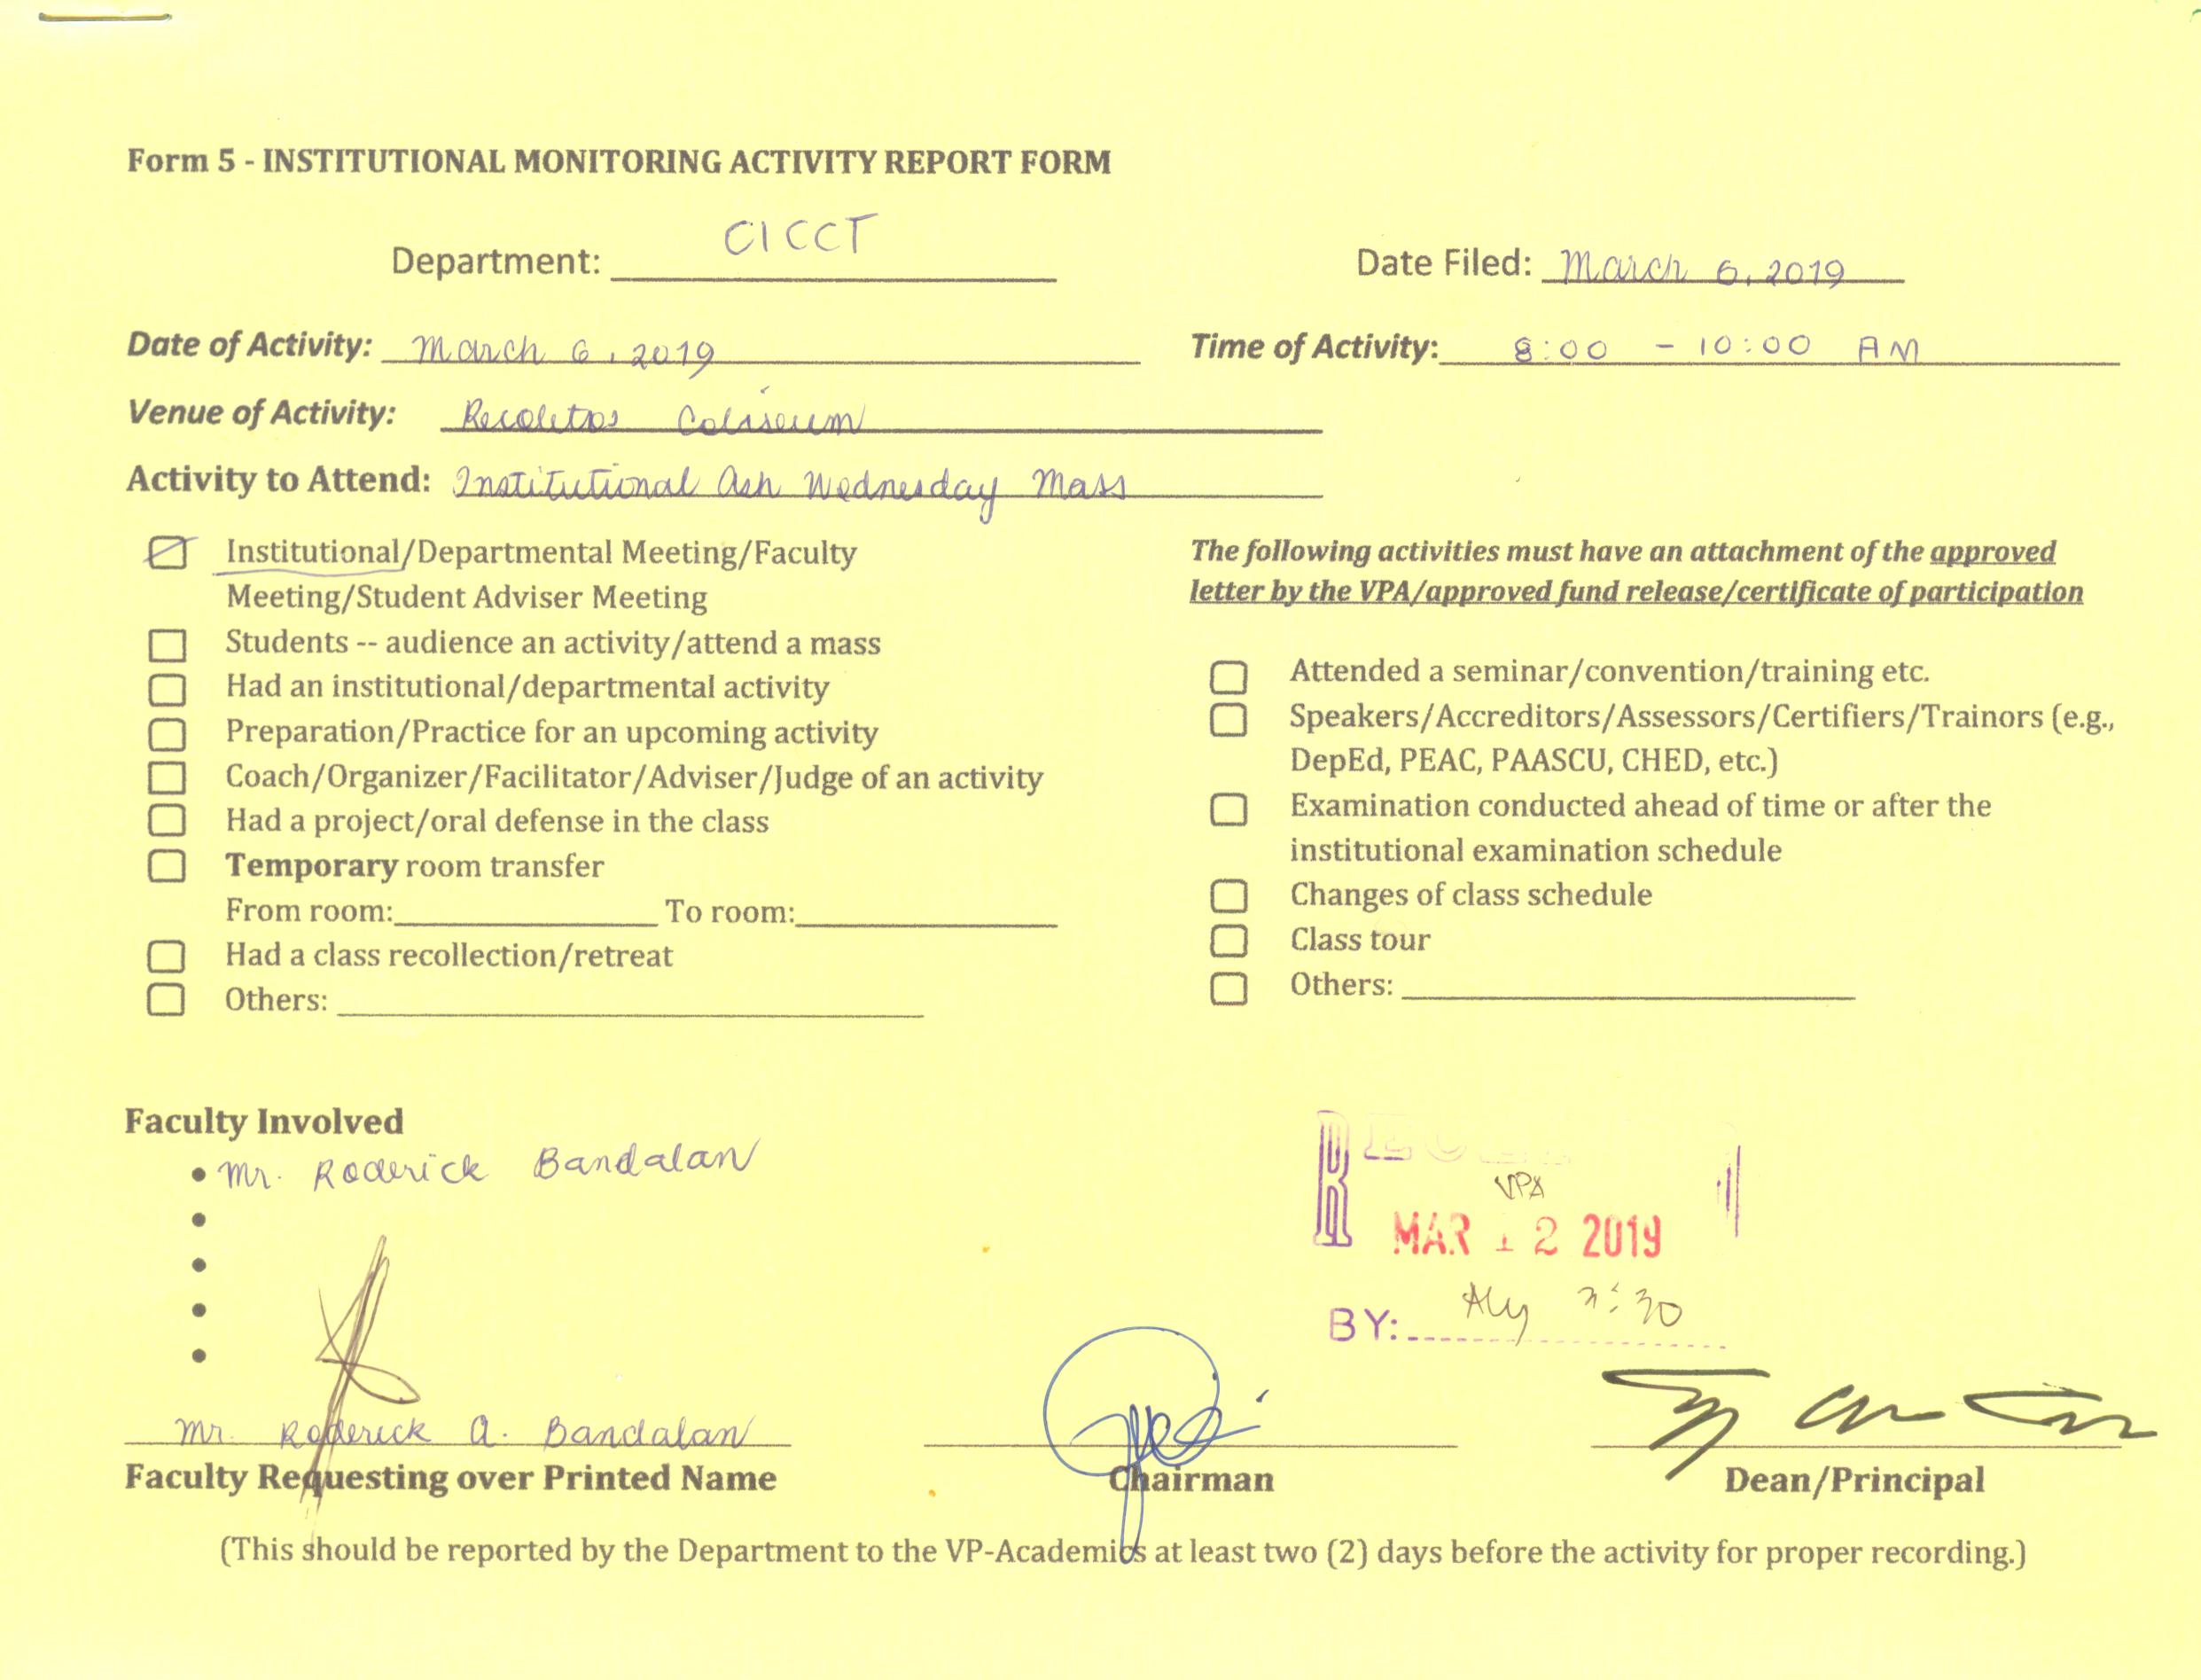 Form 5 - INSTITUTIONAL MONITORING ACTIVITY REPORT FORM
Department: CICCT
Date Filed: March 6, 2019
Date of Activity: March 6, 2019
Time of Activity: 8:00 - 10:00 AM
Venue of Activity: Recoletos Coliseum
Activity to Attend: Institutional Ash Wednesday Mass
Institutional/Departmental Meeting/Faculty
Meeting/Student Adviser Meeting
Students -- audience an activity/attend a mass
Had an institutional/departmental activity
Preparation/Practice for an upcoming activity
Coach/Organizer/Facilitator/Adviser/Judge of an activity
Had a project/oral defense in the class
Temporary room transfer
From room: To room:
Had a class recollection/retreat
Others:
The following activities must have an attachment of the approved
letter by the VPA/approved fund release/certificate of participation
Attended a seminar/convention/training etc.
Speakers/Accreditors/Assessors/Certifiers/Trainors (e.g.,
DepEd, PEAC, PAASCU, CHED, etc.)
Examination conducted ahead of time or after the
institutional examination schedule
Changes of class schedule
Class tour
Others:
Faculty Involved
• Mr. Roderick Bandalan
•
•
•
•
VPA
MAR 12 2019
BY:
Mr. Roderick A. Bandalan
Faculty Requesting over Printed Name
Chairman
Dean/Principal
(This should be reported by the Department to the VP-Academics at least two (2) days before the activity for proper recording.)